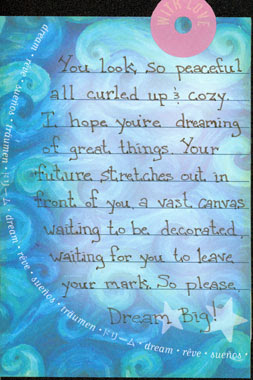 WITH LOVE
You look so peaceful
all curled up & cozy.
I hope you're dreaming
of great things. Your
future stretches out in
front of you, a vast canvas
waiting to be decorated,
waiting for you to leave
your mark. So please,
Dream Big!
dream • rêve • sueños • träumen • ドリーム • dream • rêve • sueños • träumen • ドリーム • dream • rêve • sueños •